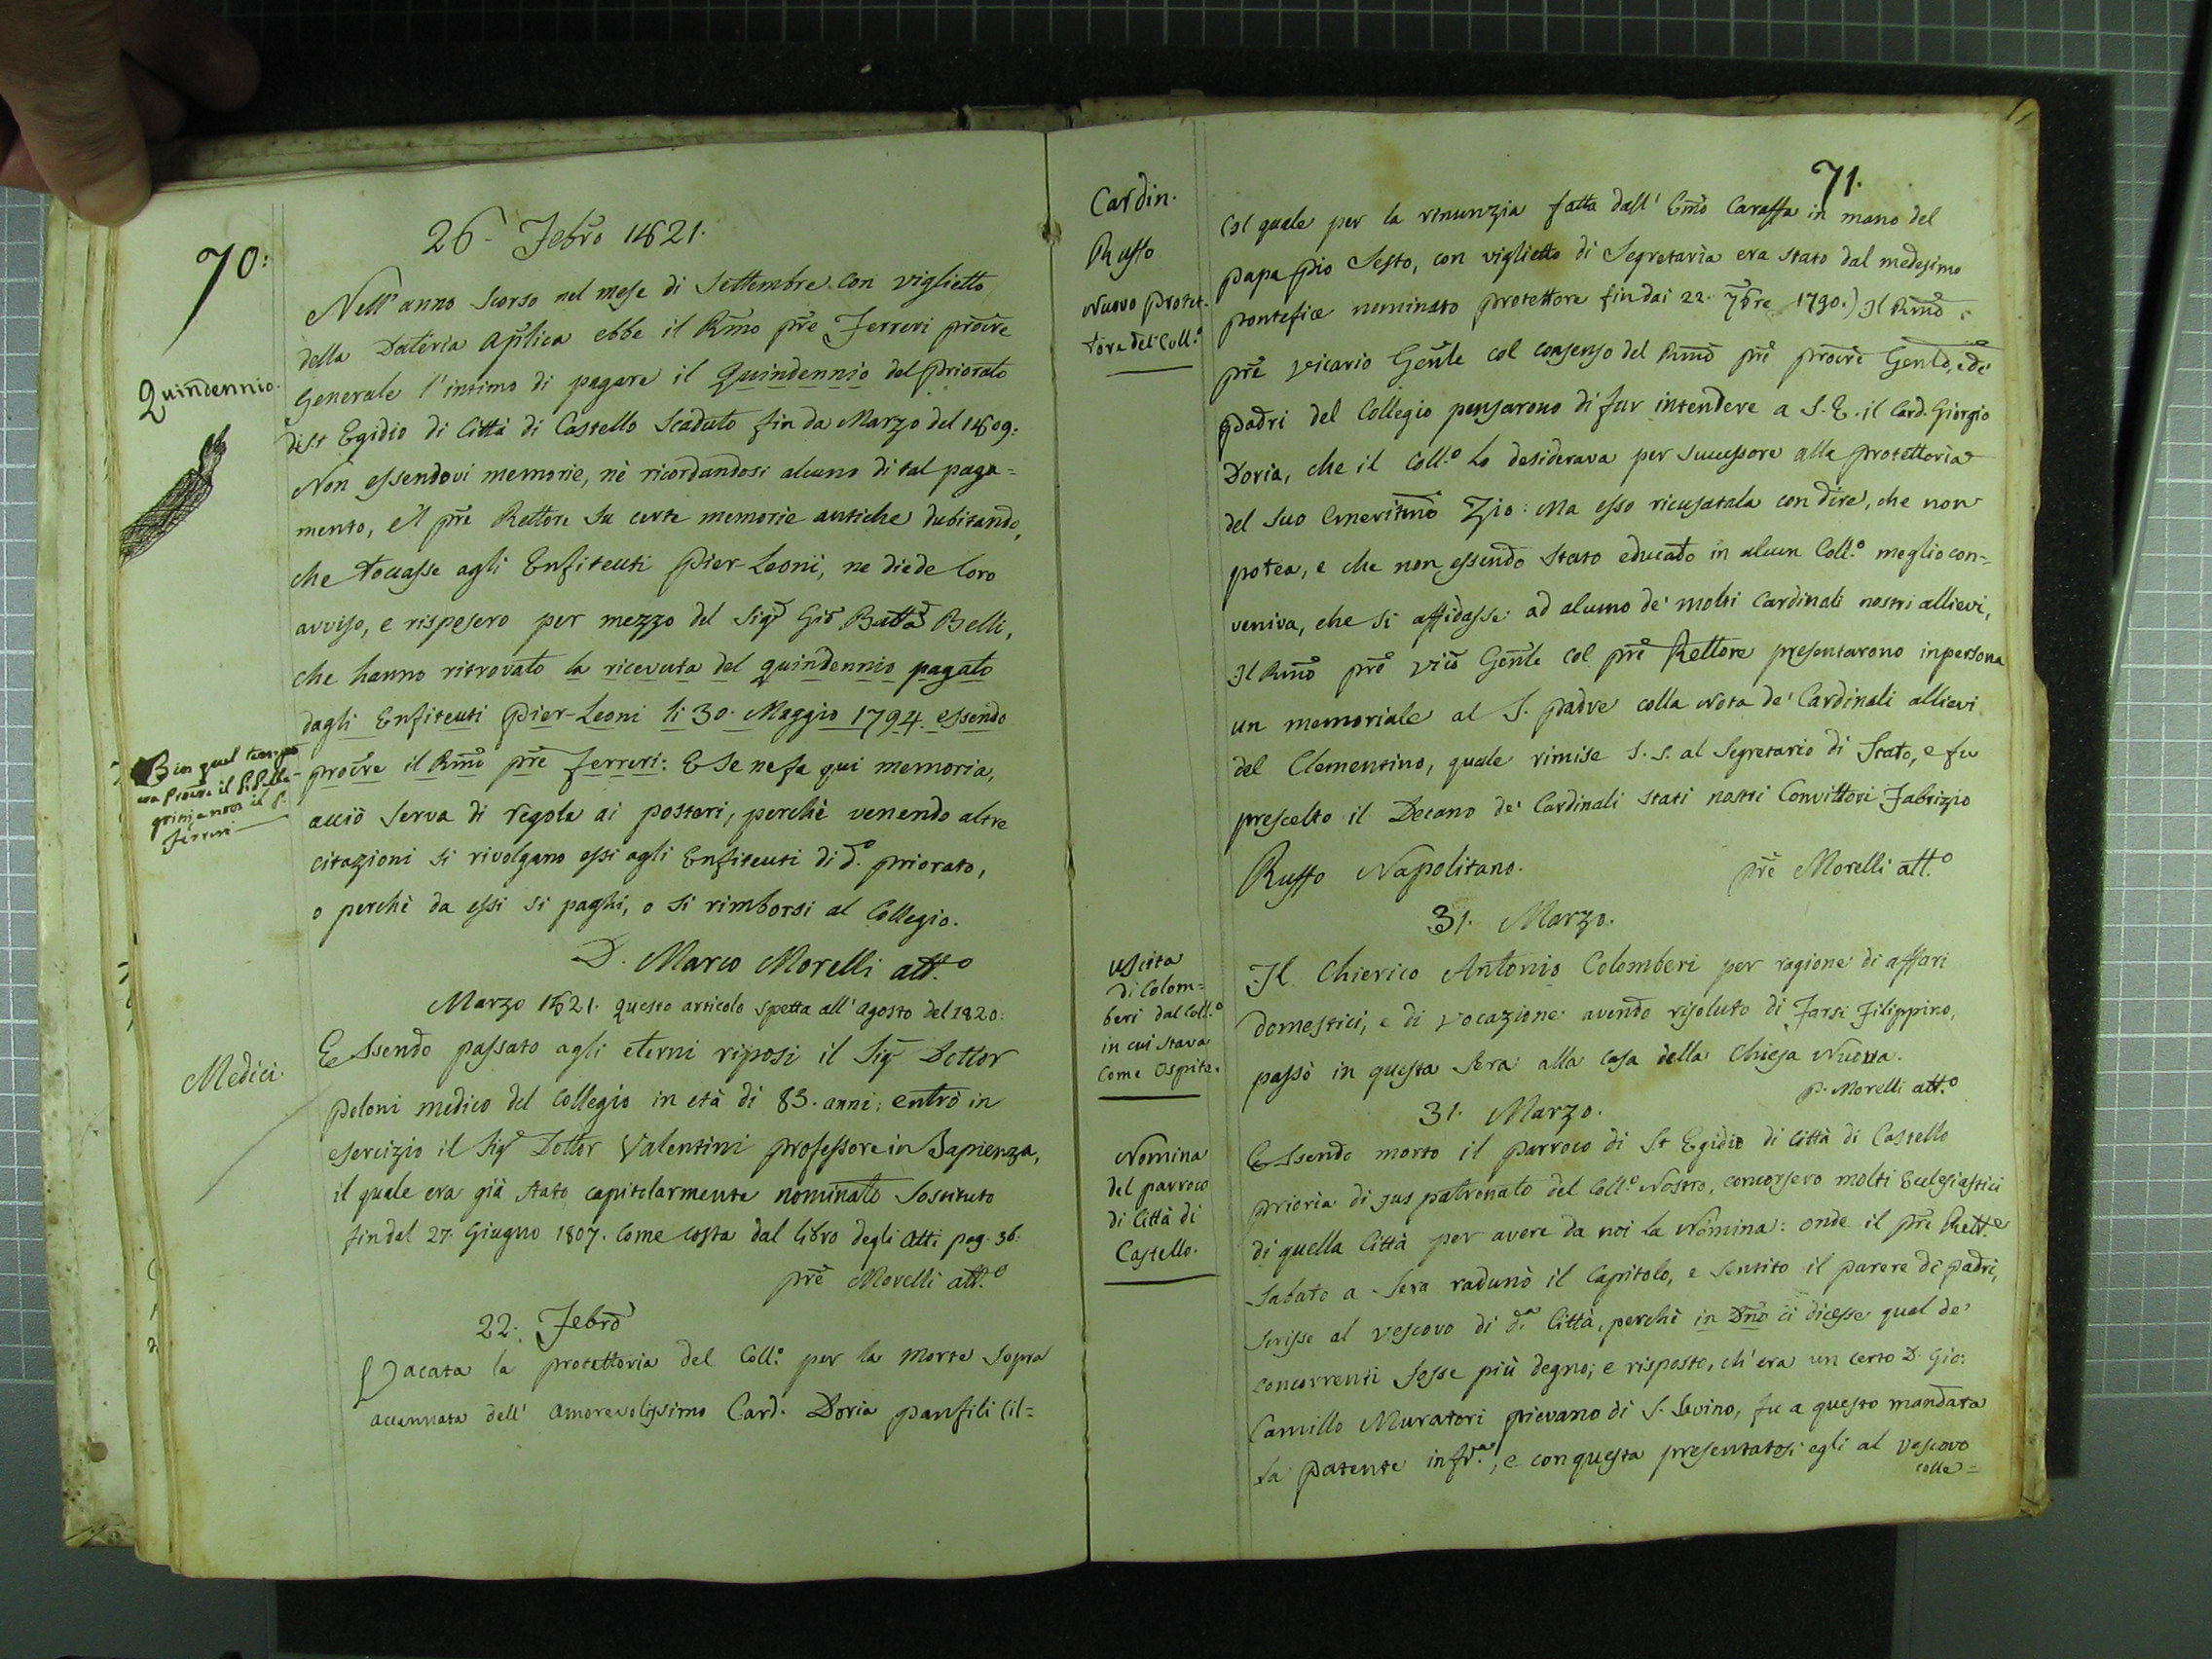 70:
26. Febro 1821.
Quindennio.
Nell' anno scorso nel mese di Settembre con viglietto
della Dateria Aplica ebbe il Rmo pre Ferreri procre
Generale l'intimo di pagare il Quindennio del Priorato
di St Egidio di Città di Castello scaduto fin da Marzo del 1809:
Non essendovi memorie, nè ricordandosi alcuno di tal paga=
mento, e'l pre Rettore su certe memorie antiche dubitando,
che toccasse agli Enfiteuti Pier-Leoni, ne diede loro
avviso, e risposero per mezzo del Sigr Gio Batta Belli,
che hanno ritrovato la ricevuta del quindennio pagato
dagli Enfiteuti Pier-Leoni li 30. Maggio 1794. essendo
procre il Rmo pre Ferreri: E se ne fa qui memoria,
acciò serva di regola ai posteri, perchè venendo altre
citazioni si rivolgano essi agli Enfiteuti di do. priorato,
o perchè da essi si paghi, o si rimborsi al Collegio.
D. Marco Morelli att.o
in quel tempo
era Procre il P. Pelle-
grini e non il P.
Ferreri
Marzo 1821. questo articolo spetta all' Agosto del 1820:
Medici.
Essendo passato agli eterni riposi il Sigr Dottor
Peloni medico del Collegio in età di 83. anni; entrò in
esercizio il Sigr Dottor Valentini professore in Sapienza,
il quale era già stato capitolarmente nominato sostituto
fin dal 27. Giugno 1807. come costa dal libro degli Atti pag. 36:
pre Morelli att.o
22. Febro
Vacata la protettoria del Coll.o per la morte sopra
accennata dell' amorevolissimo Card. Doria Panfili (il=
71.
Cardin.
Ruffo
Nuovo Protet-
tore del Coll.o
(il quale per la rinunzia fatta dall' Emo Caraffa in mano del
Papa Pio Sesto, con viglietto di Segretaria era stato dal medesimo
Pontefice nominato protettore fin dai 22. 7bre 1790.) Il Rmo
pre Vicario Genle col consenso del Rmo pre procre Genle, e de'
Padri del Collegio pensarono di far intendere a S. E. il Card. Giorgio
Doria, che il Coll.o lo desiderava per successore alla protettoria
del suo Emeritmo Zio: Ma esso ricusatala con dire, che non
potea, e che non essendo stato educato in alcun Coll.o meglio con-
veniva, che si affidasse ad alcuno de' molti Cardinali nostri allievi,
Il Rmo pre Vico Genle col pre Rettore presentarono in persona
un memoriale al S. Padre colla nota de' Cardinali allievi
del Clementino, quale rimise S. S. al Segretario di Stato, e fu
prescelto il Decano de' Cardinali stati nostri Convittori Fabrizio
Ruffo Napolitano.
pre Morelli att.o
31. Marzo.
Uscita
di Colom=
beri dal Coll.o
in cui stava
come ospite.
Il Chierico Antonio Colomberi per ragione di affari
domestici, e di vocazione avendo risoluto di farsi Filippino,
passò in questa sera alla casa della Chiesa Nuova.
P. Morelli att.o
31. Marzo.
Nomina
del parroco
di Città di
Castello.
Essendo morto il parroco di St Egidio di Città di Castello
prioria di jus patronato del Coll.o Nostro, concorsero molti Ecclesiastici
di quella Città per avere da noi la Nomina: onde il pre Rett.e
Sabato a sera radunò il Capitolo, e sentito il parere de' padri,
scrisse al Vescovo di da Città, perchè in Dno ci dicesse qual de'
concorrenti fosse più degno; e risposto, ch'era un certo D. Gio:
Camillo Muratori pievano di S. Savino, fu a questo mandata
la patente infra., e con questa presentatosi egli al Vescovo
colle=